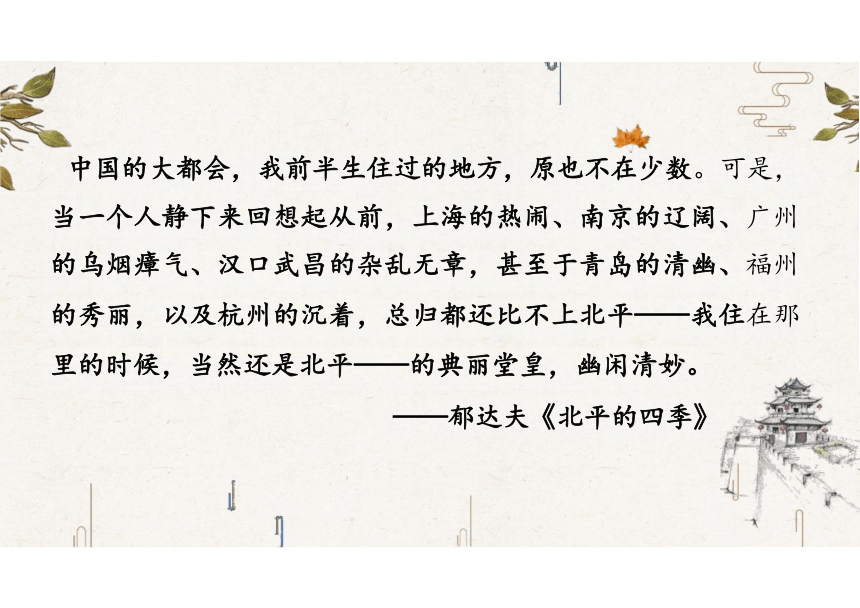 中国的大都会，我前半生住过的地方，原也不在少数。可是，
当一个人静下来回想起从前，上海的热闹、南京的辽阔、广州
的乌烟瘴气、汉口武昌的杂乱无章，甚至于青岛的清幽、福州
的秀丽，以及杭州的沉着，总归都还比不上北平——我住在那
里的时候，当然还是北平——的典丽堂皇，幽闲清妙。
——郁达夫《北平的四季》